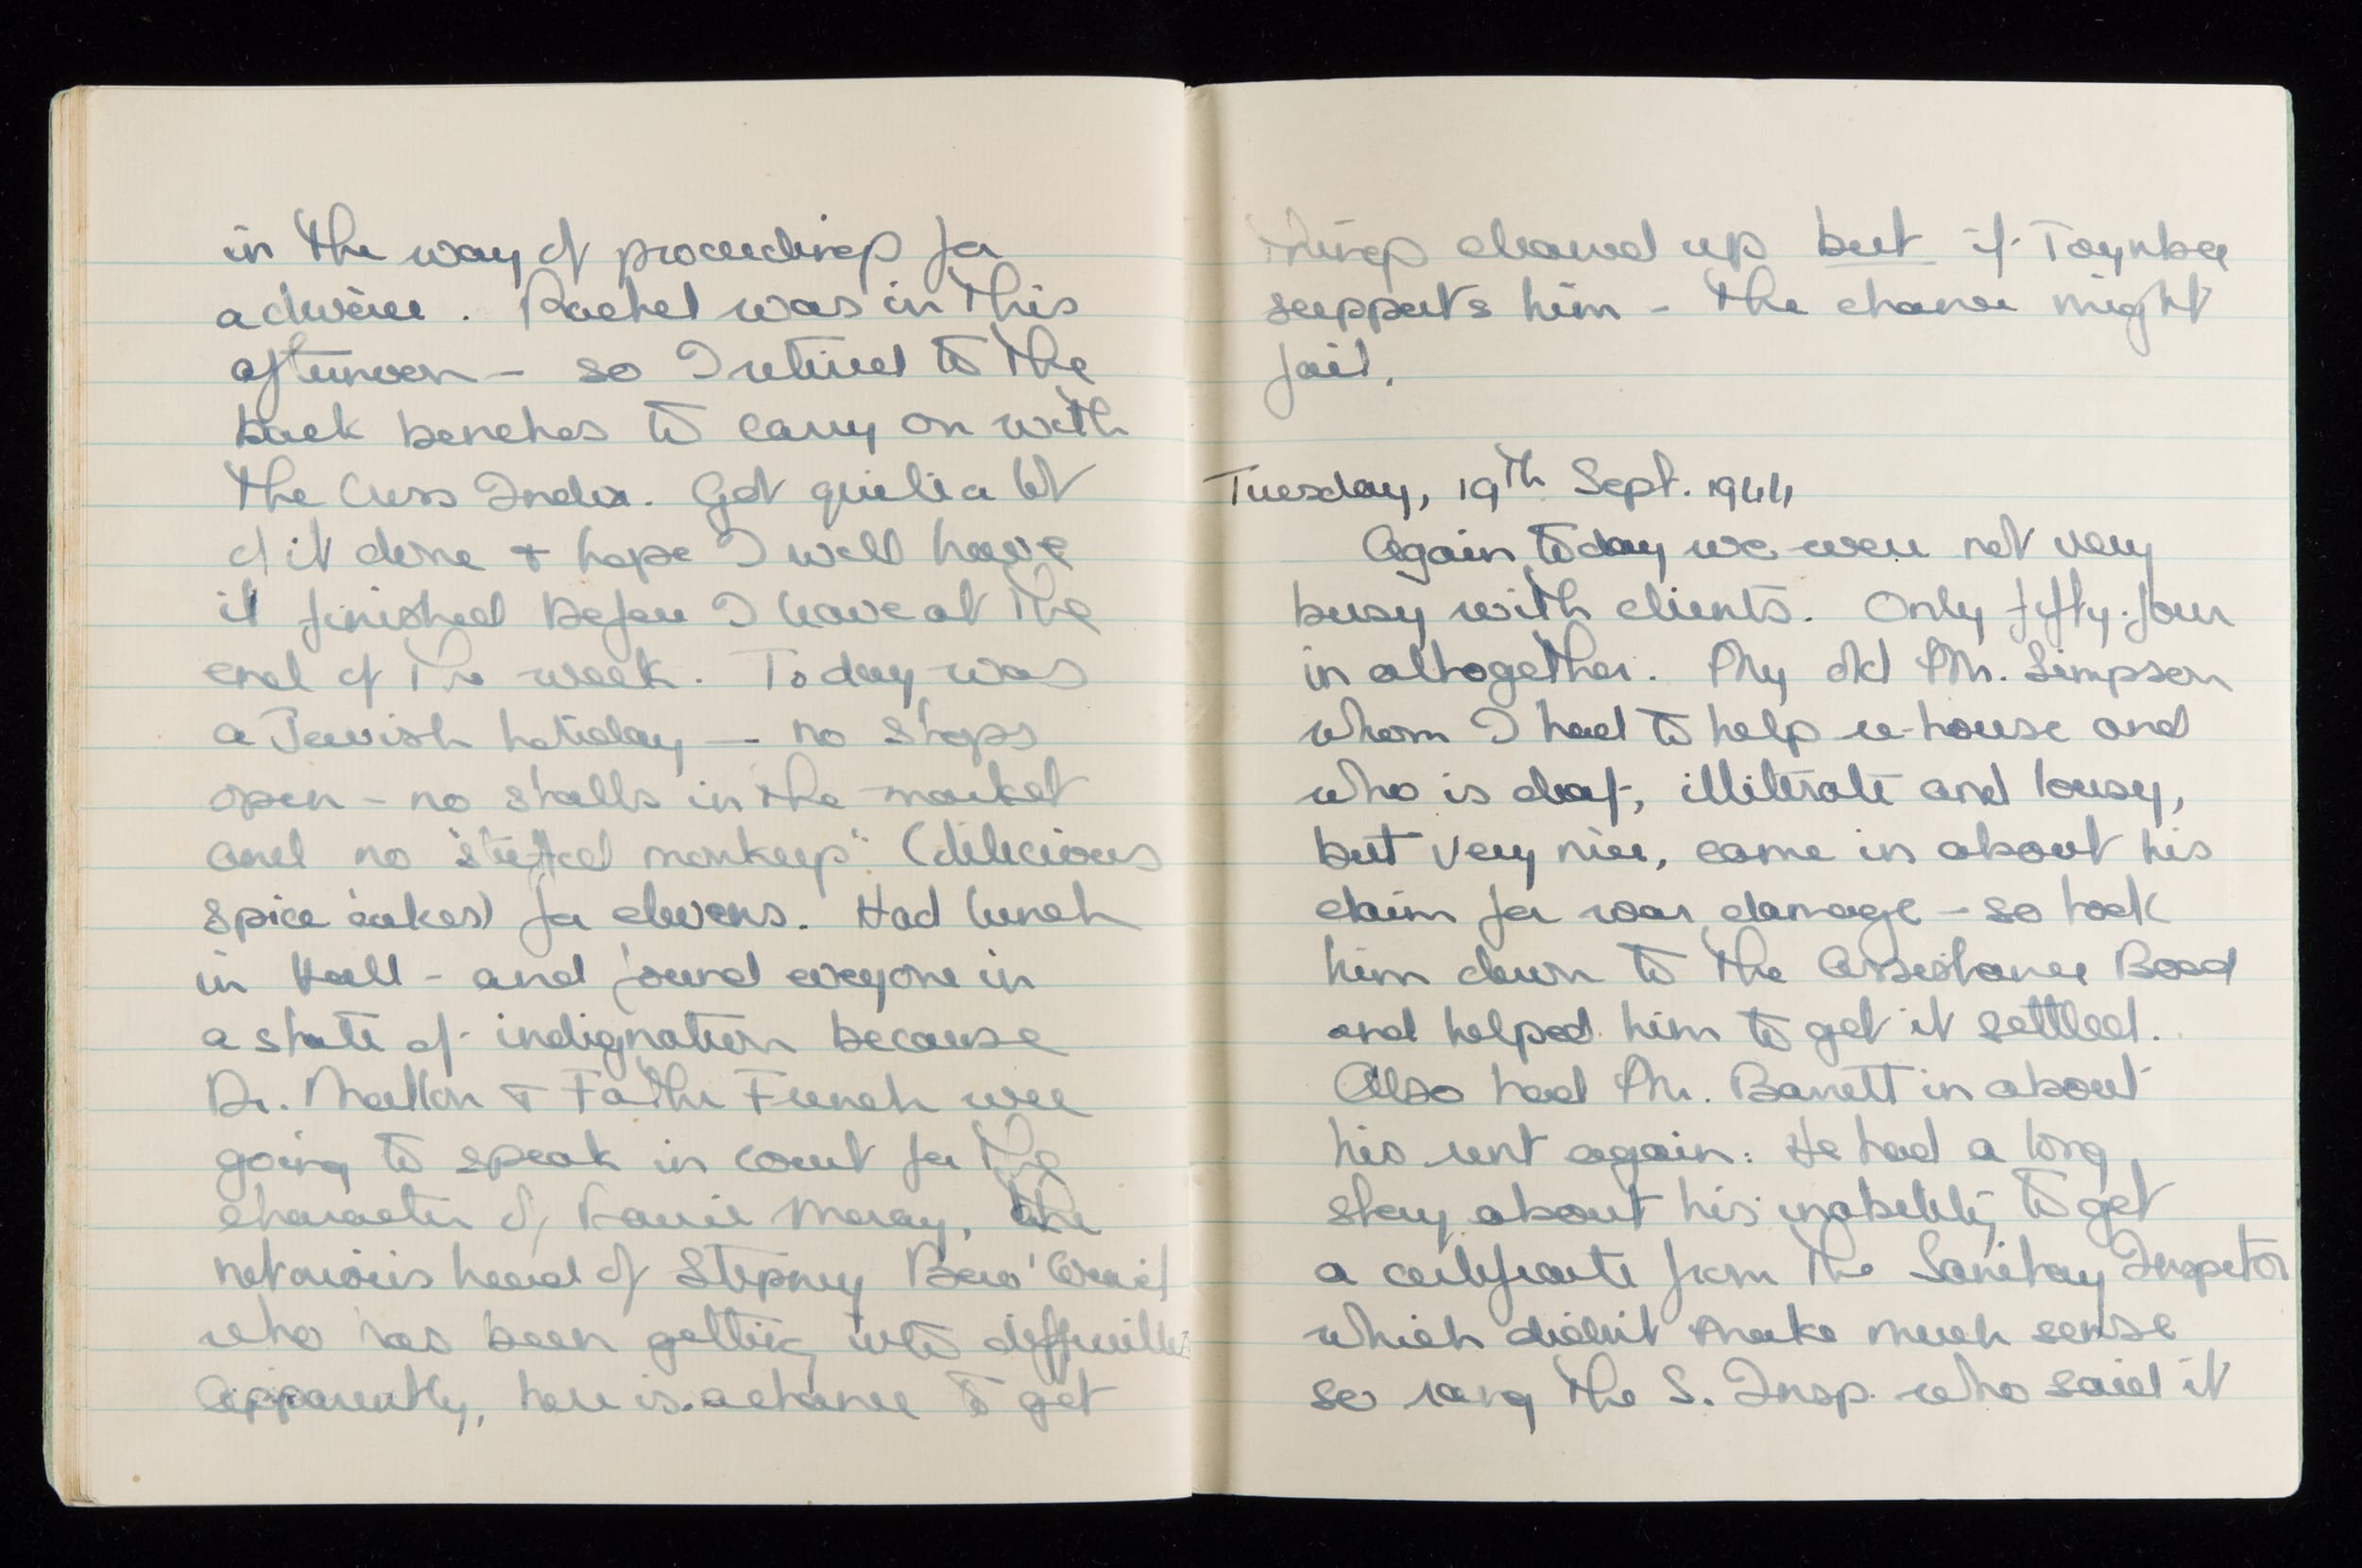 in the way of proceedings for
adwice. Rachel was in this
afternoon - so I retired to the
back benches to carry on with
the Index. Got quite a lot
of it done + hope I will have
it finished before I leave at the
end of the week. Today was
a Jewish holiday — no shops
open - no stalls in the market
and no "stuffed monkeys" (delicious
spice cakes) for elevens. Had lunch
in Hall - and found everyone in
a state of indignation because
Dr. Mallon + Father French were
going to speak in court for the
character of Moray, the
notorious head of Stepney Boro'
who has been getting into difficulties
Apparently, here is a chance to get
things cleaned up but if Toynbee
supports him - the chance might
fail.
Tuesday, 19th Sept. 1944
Again today we were not very
busy with clients. Only fifty-four
in altogether. My old Mr. Simpson
whom I had to help re-house and
who is deaf, illiterate and lousy,
but very nice, came in about his
claim for war damage - so took
him down to the Assistance Board
and helped him to get it settled.
Also had Mr. Barrett in about
his rent again: He had a long
story about his inability to get
a certificate from the Sanitary Inspector
which didn't make much sense
so rang the S. Insp. who said it